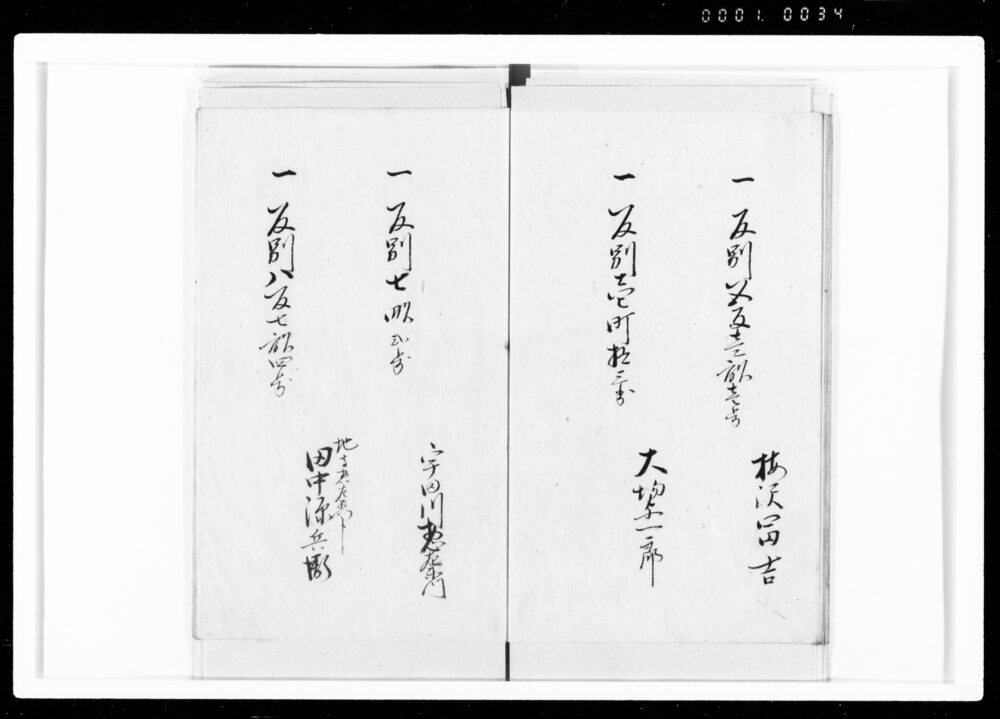 0001.0034
一反別五反壱畝壱歩
梅沢富吉
一反別壱町拾三歩
大場与一郎
一反別七畝弐歩
宇田川惣左衛門
一反別八反七畝四歩
田中源兵衛